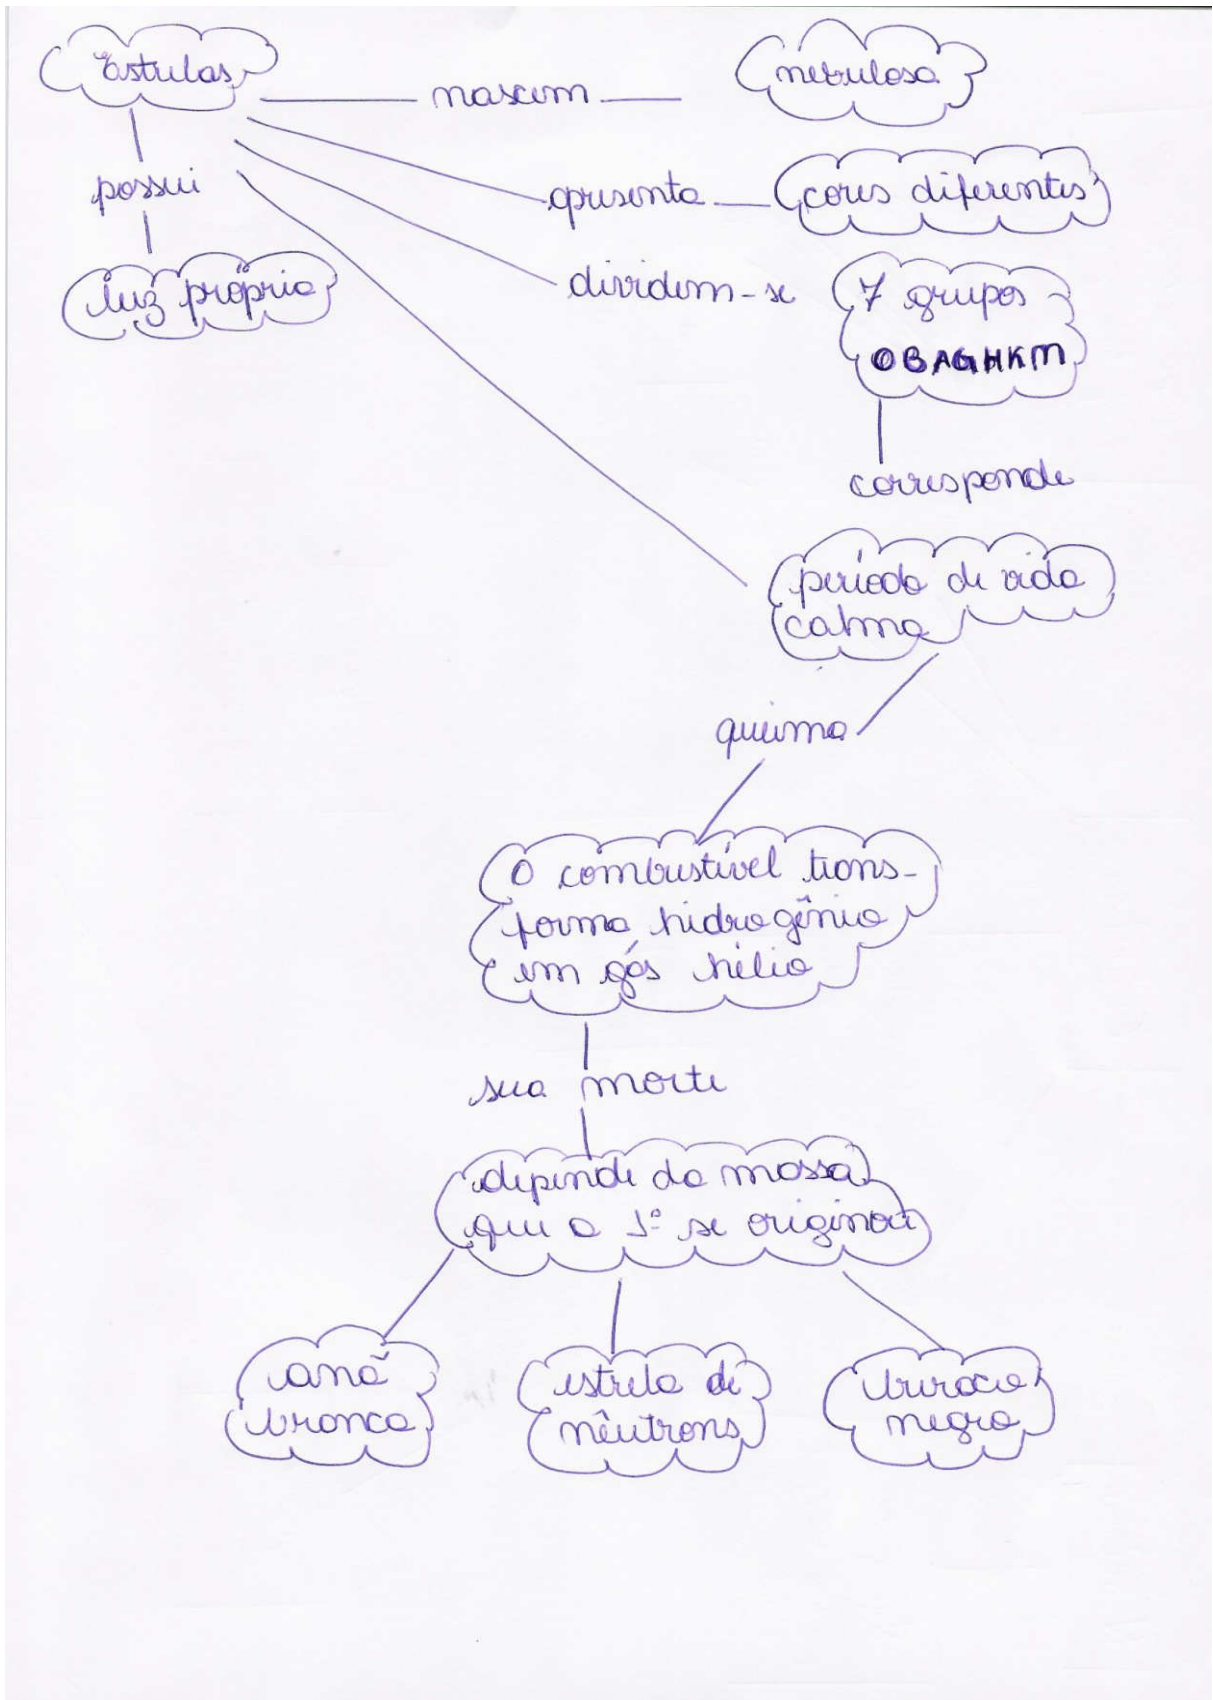 Estrelas
nascem
nebulosa
possui
apresenta
cores diferentes
luz própria
dividem-se
7 grupos
OBAGHKM
corresponde
período de vida
calma
queima
O combustível trans-
forma hidrogênio
em gás hélio
sua morte
depende da massa
que a 1ª se originou
anã
branca
estrela de
nêutrons
buraco
negro